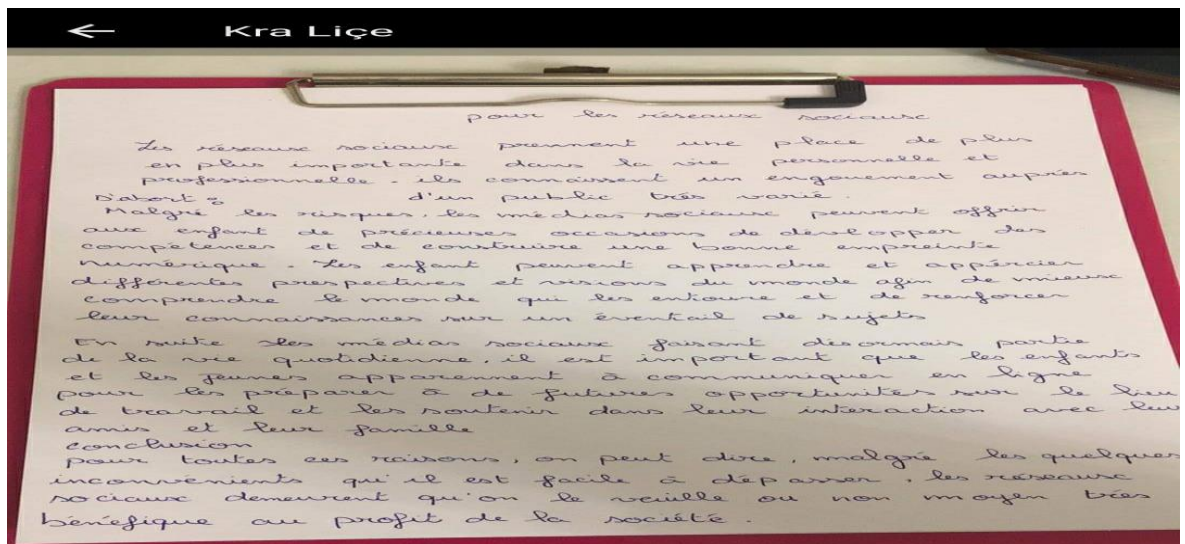 Kra Liçe
pour les réseaux sociaux
Les réseaux sociaux prennent une place de plus
en plus importante dans la vie personnelle et
professionnelle. ils connaissent un engouement auprès
d'un public très varié.
D'abort :
Malgré les risques, les médias sociaux peuvent offrir
aux enfant de précieuses occasions de développer des
compétences et de construire une bonne empreinte
numérique. Les enfant peuvent apprendre et appércier
différentes prespectives et visions du monde afin de mieux
comprendre le monde qui les entoure et de renforcer
leur connaissances sur un éventail de sujets
En suite les médias sociaux faisant désormais partie
de la vie quotidienne, il est important que les enfants
et les jeunes apparennent à communiquer en ligne
pour les préparer à de futures opportunités sur le lieu
de travail et les soutenir dans leur interaction avec leur
amis et leur famille
conclusion
pour toutes ces raisons, on peut dire, malgré les quelques
inconvenients qu'il est facile à dépasser, les réseaux
sociaux demeurent qu'on le veuille ou non moyen très
bénéfique au profit de la société.